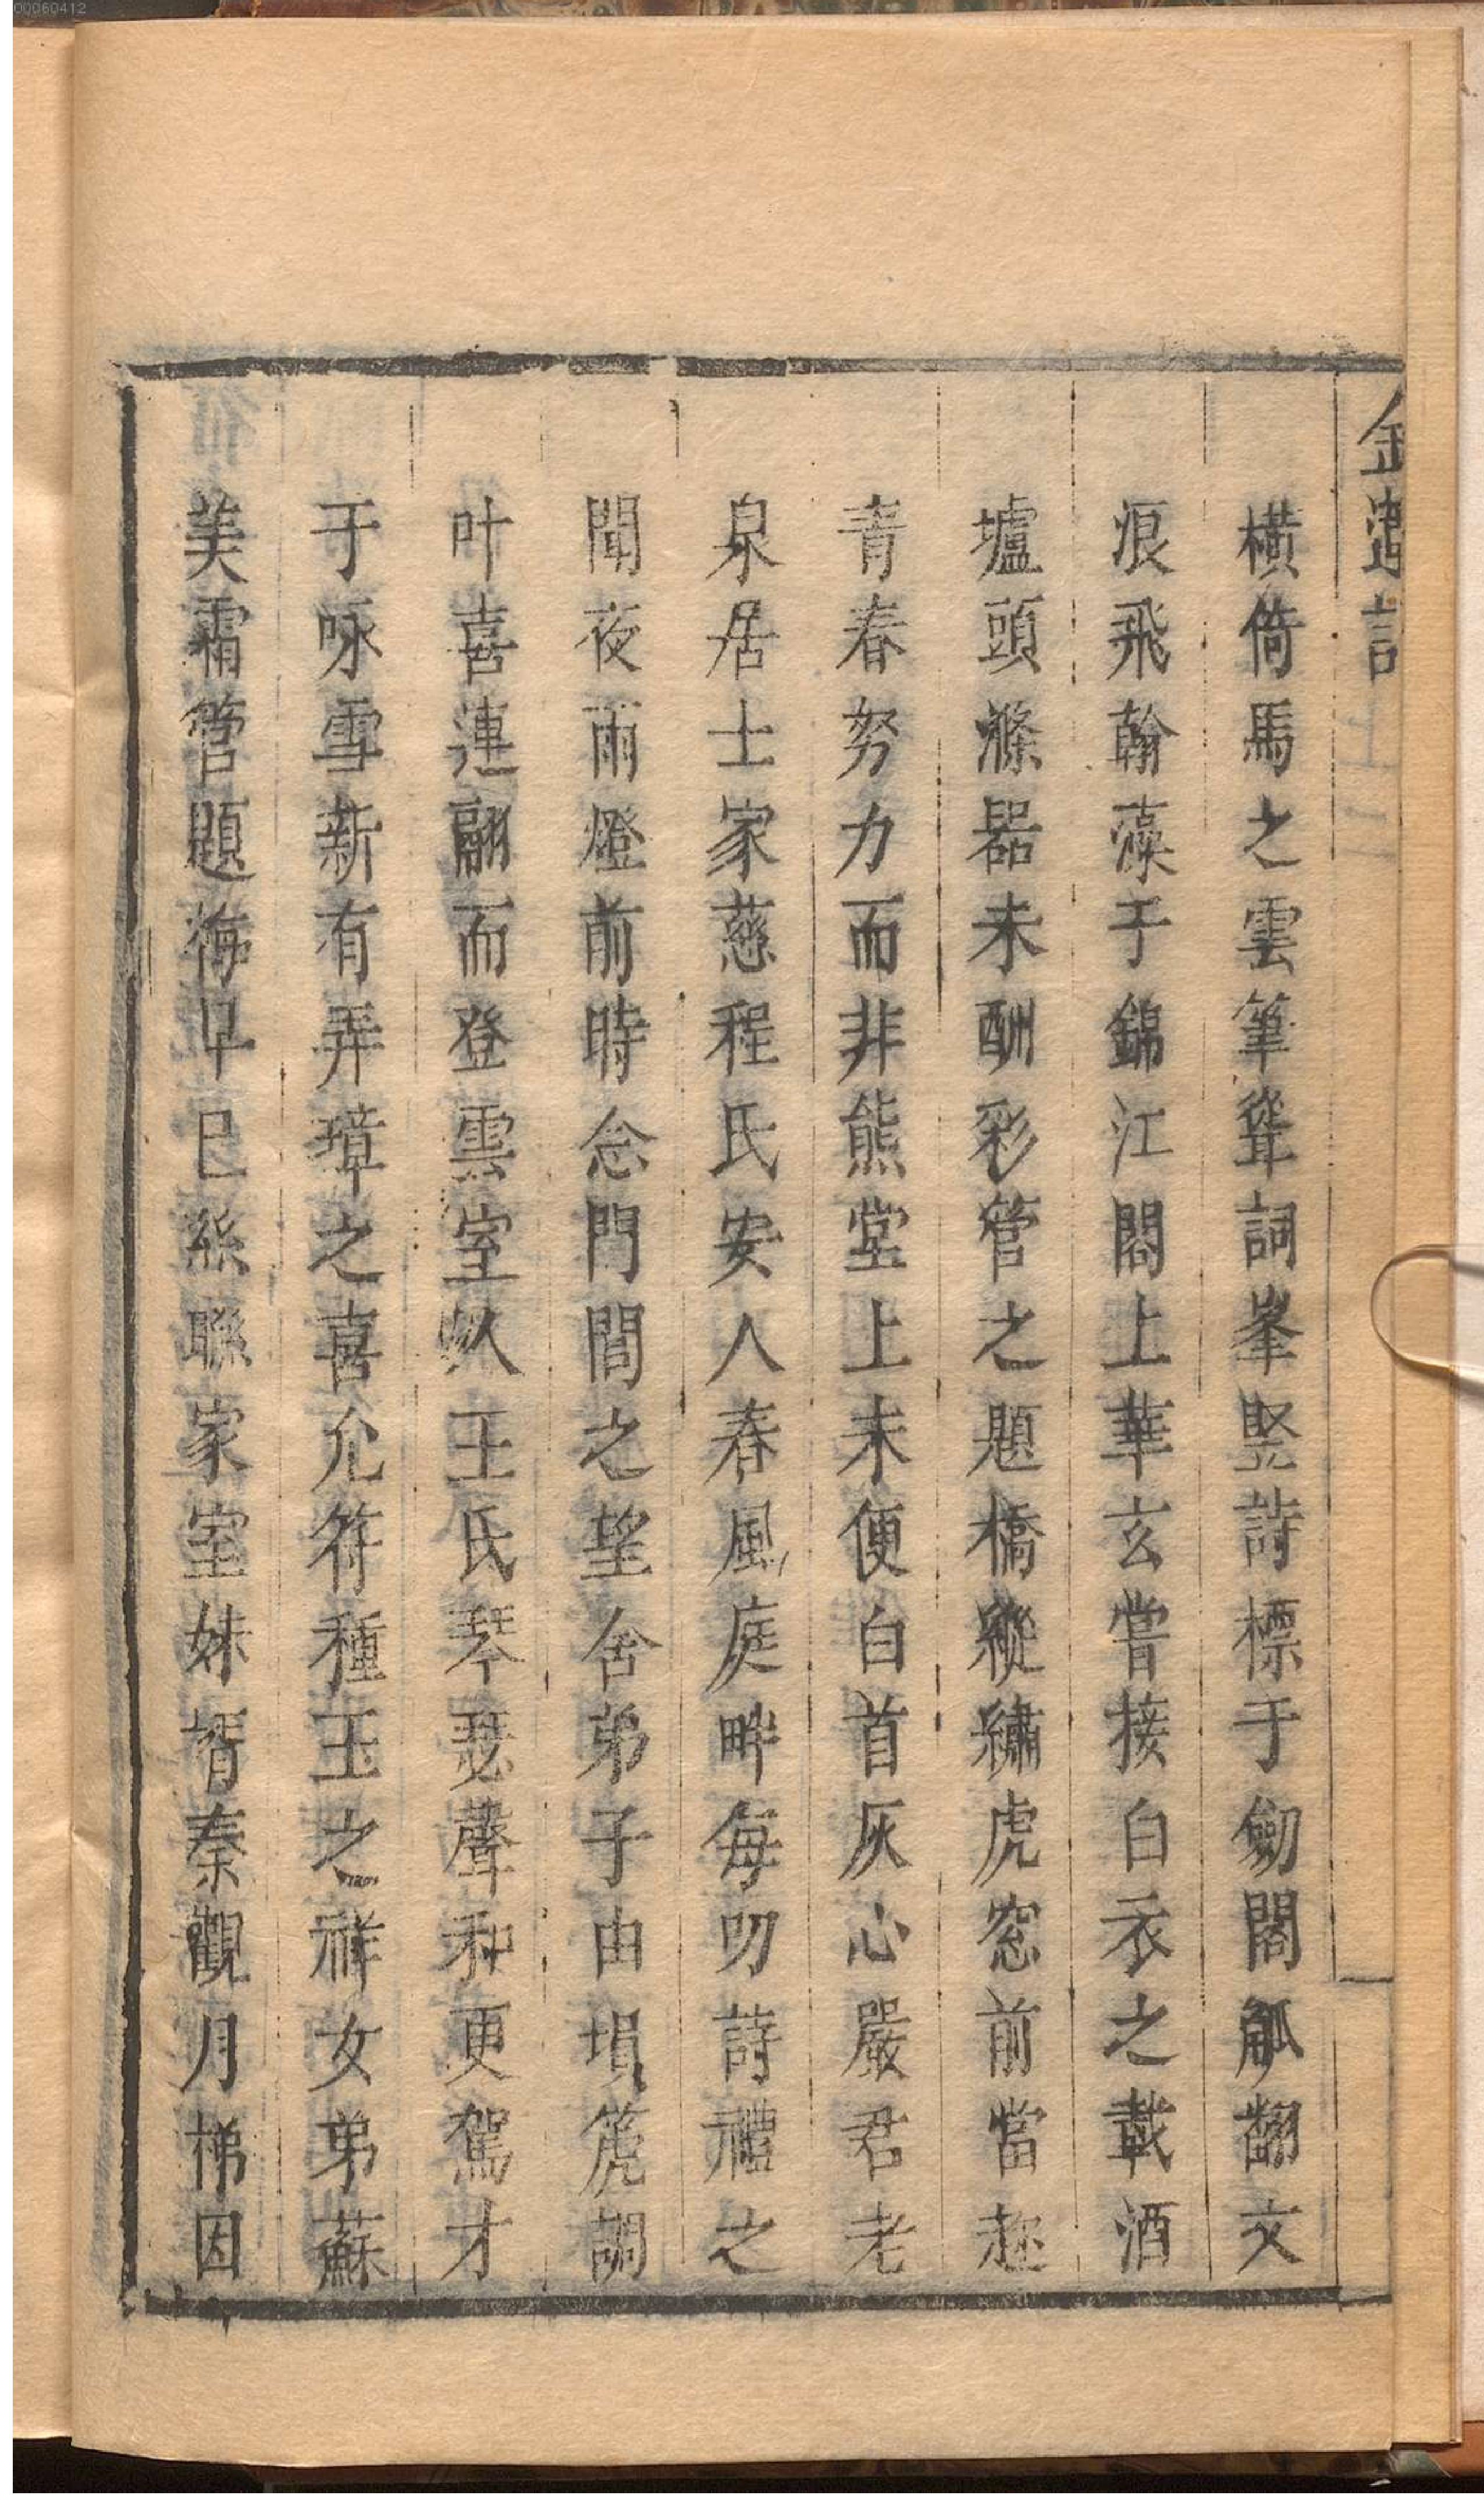 00060412
金蓮記
橫倚馬之雲筆聳詞峯竪詩標于劒閣觚翻文
浪飛翰藻于錦江閣上華玄嘗接白衣之載酒
壚頭滌器未酬彩管之題橋縱繡虎窓前當趂
青春努力而非熊堂上未便白首灰心嚴君老
泉居士家慈程氏安人春風庭畔每叨詩禮之
聞夜雨燈前時念門閭之望舍弟子由塤箎調
叶喜連翩而登雲室人王氏琴瑟聲和更駕才
于咏雪新有弄璋之喜允符種玉之祥女弟蘇
美霜管題梅早已絲聯家室妹壻秦觀月梯因